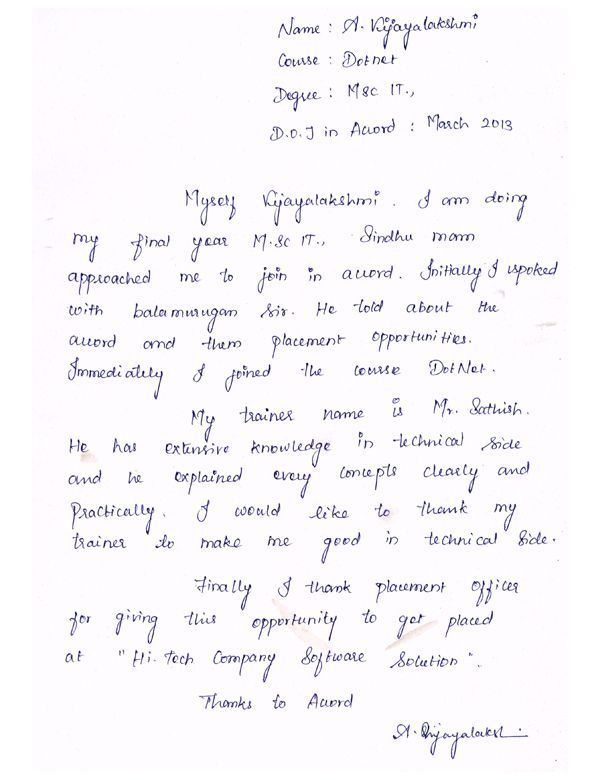 Name : A. Vijayalakshmi
Course : Dotnet
Degree : MSC IT.,
D.O.J in Accord : March 2013
Myself Vijayalakshmi. I am doing
my final year M.SC IT., Sindhu mam
approached me to join in accord. Initially I spoked
with balamurugan sir. He told about the
accord and them placement opportunities.
Immediately I joined the course DotNet.
My trainer name is Mr. Sathish.
He has extensive knowledge in technical side
and he explained every concepts clearly and
Practically. I would like to thank my
trainer to make me good in technical side.
Finally I thank placement officer
for giving this opportunity to get placed
at "Hi. Tech Company Software Solution".
Thanks to Accord
A. Vijayalaksh